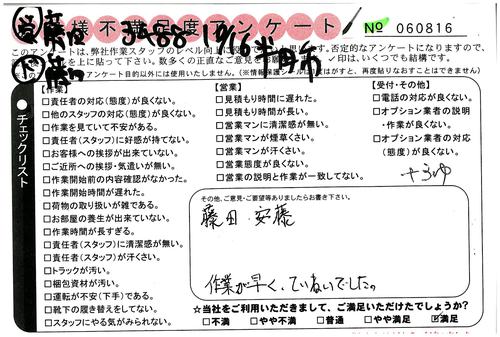 お客様不満足度アンケート
№ 060816
このアンケートは、弊社作業スタッフのレベル向上に
否定的なアンケートになりますので、
を上に貼って下さい。数多くの正直なご意見をお願
✓印は、いくつでも結構です。
●チェックリスト
【作業】
□責任者の対応(態度)が良くない。
□他のスタッフの対応(態度)が良くない。
□作業を見ていて不安がある。
□責任者(スタッフ)に好感が持てない。
□お客様への挨拶が出来ていない。
□ご近所への挨拶・気遣いが無い。
□作業開始前の内容確認がなかった。
□作業開始時間が遅れた。
□荷物の取り扱いが雑である。
□お部屋の養生が出来ていない。
□作業時間が長すぎる。
□責任者(スタッフ)に清潔感が無い。
□責任者(スタッフ)が汗くさい。
□トラックが汚い。
□梱包資材が汚い。
□運転が不安(下手)である。
□靴下の履き替えをしてない。
□スタッフにやる気がみられない。
【営業】
□見積もり時間に遅れた。
□見積もり時間が長い。
□営業マンに清潔感が無い。
□営業マンが煙草くさい。
□営業マンが汗くさい。
□営業態度が良くない。
□営業の説明と作業が一致してない。
【受付・その他】
□電話の対応が良くない。
□オプション業者の説明
・作業が良くない。
□オプション業者の対応
(態度)が良くない。
その他、ご意見・ご要望等ありましたらお書き下さい。
藤田 安藤
作業が早く、ていねいでした。
☆当社をご利用いただきまして、ご満足いただけたでしょうか?
□不満 □やや不満 □普通 □やや満足 ☑満足